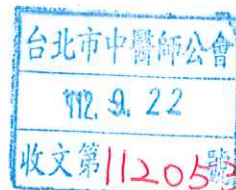 台北市中醫師公會
112. 9. 22
收文第112053號